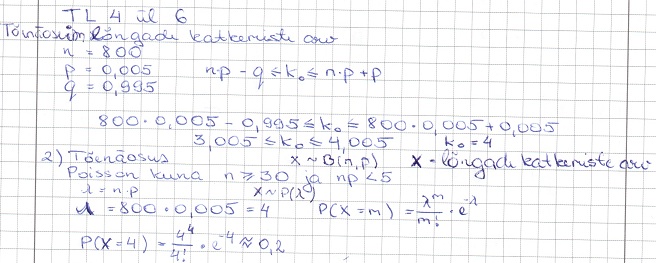 TL 4 ül 6
Tõenäosim lõngade katkemiste arv
n = 800
p = 0,005 n·p - q ≤ k₀ ≤ n·p + p
q = 0,995
800 · 0,005 - 0,995 ≤ k₀ ≤ 800 · 0,005 + 0,005
3,005 ≤ k₀ ≤ 4,005 k₀ = 4
2) Tõenäosus X ~ B(n, p) X - lõngade katkemiste arv
Poisson kuna n ≥ 30 ja np < 5
λ = n·p X ~ P(λ)
λ = 800 · 0,005 = 4 P(X = m) = λ^m/m! · e^-λ
P(X = 4) = 4^4/4! · e^-4 ≈ 0,2